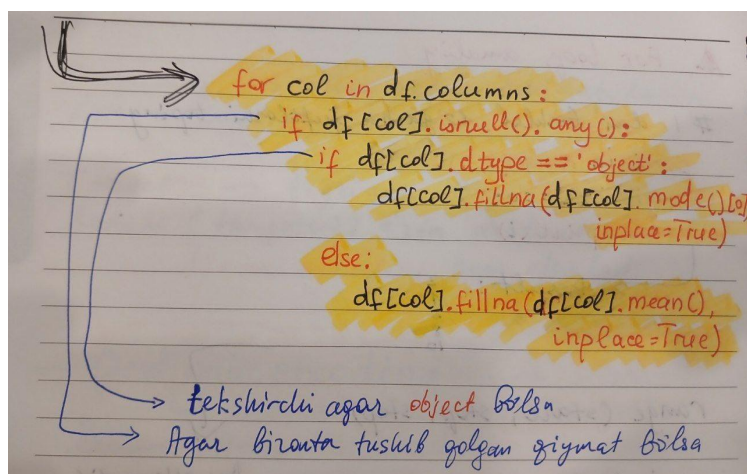 for col in df.columns:
if df[col].isnull().any():
if df[col].dtype == 'object':
df[col].fillna(df[col].mode()[0]
inplace=True)
else:
df[col].fillna(df[col].mean(),
inplace=True)
tekshirchi agar object bo'lsa
Agar bironta tushib qolgan qiymat bo'lsa